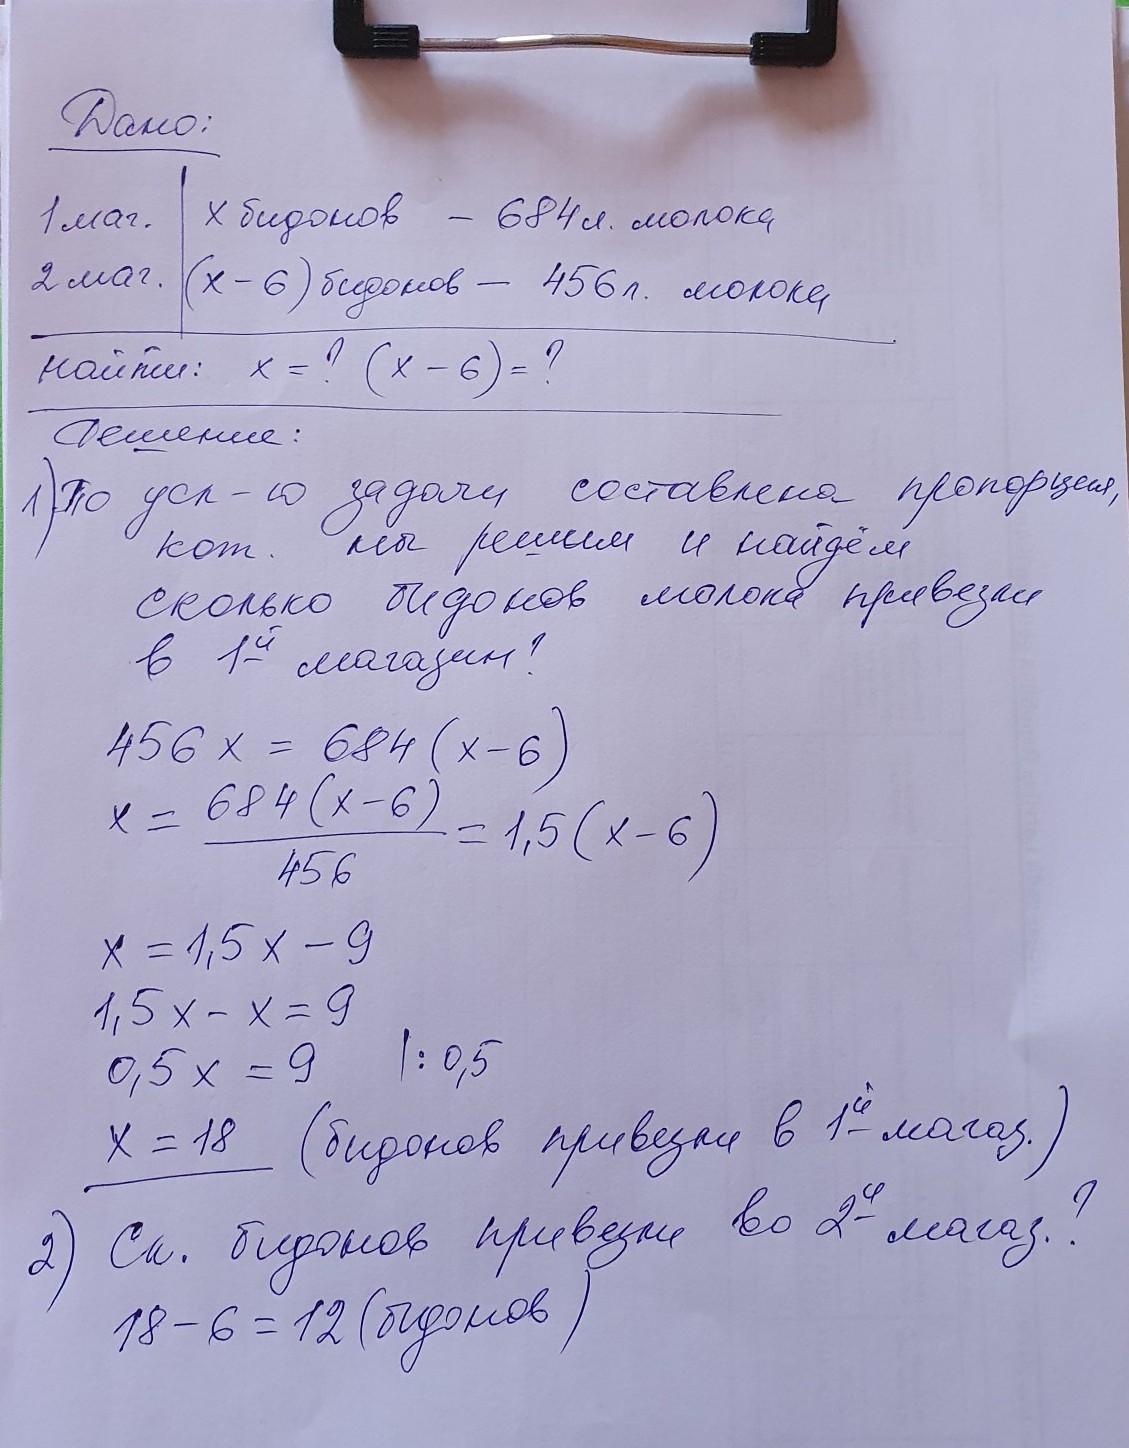 Дано:
1 маг. | х бидонов – 684 л. молока
2 маг. | (х – 6) бидонов – 456 л. молока
Найти: х = ? (х – 6) = ?
Решение:
1) По усл-ю задачи составлена пропорция,
кот. мы решим и найдём
сколько бидонов молока привезли
в 1й магазин?
456 х = 684 (х – 6)
х = 684 (х – 6) / 456 = 1,5 (х – 6)
х = 1,5 х – 9
1,5 х – х = 9
0,5 х = 9 |: 0,5
х = 18 (бидонов привезли в 1й магаз.)
2) Ск. бидонов привезли во 2й магаз.?
18 – 6 = 12 (бидонов)